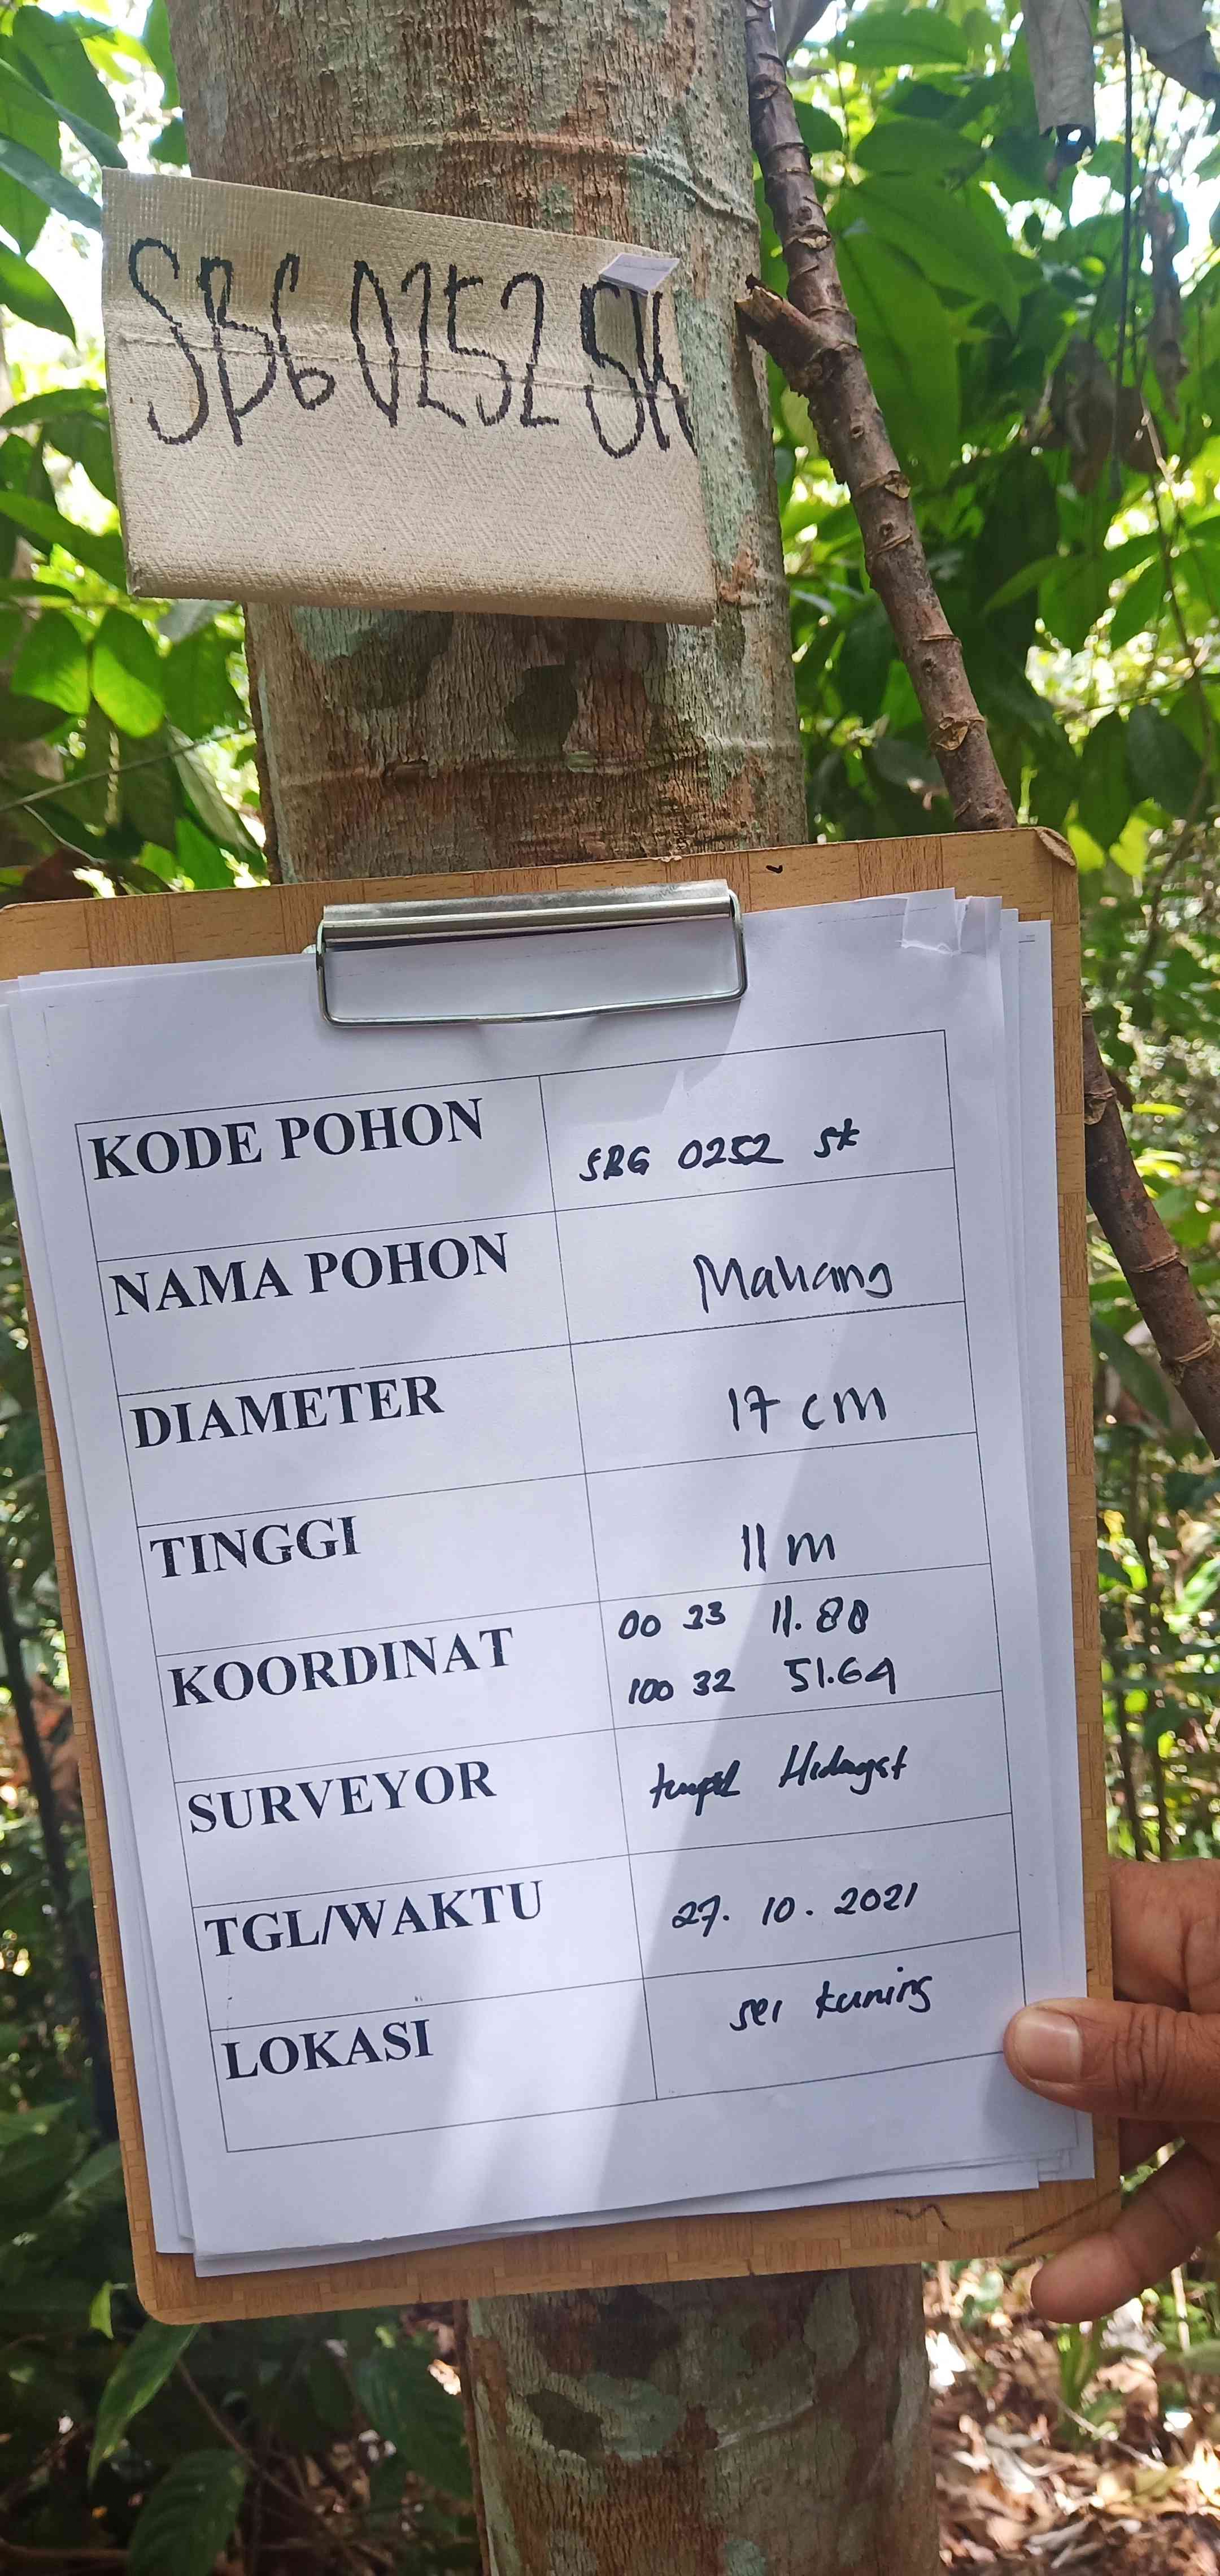 SBG 0252 SK
KODE POHON SBG 0252 SK
NAMA POHON Mahang
DIAMETER 17 cm
TINGGI 11 m
KOORDINAT 00 33 11.88
100 32 51.64
SURVEYOR Hidayat
TGL/WAKTU 27. 10. 2021
LOKASI sei kuning